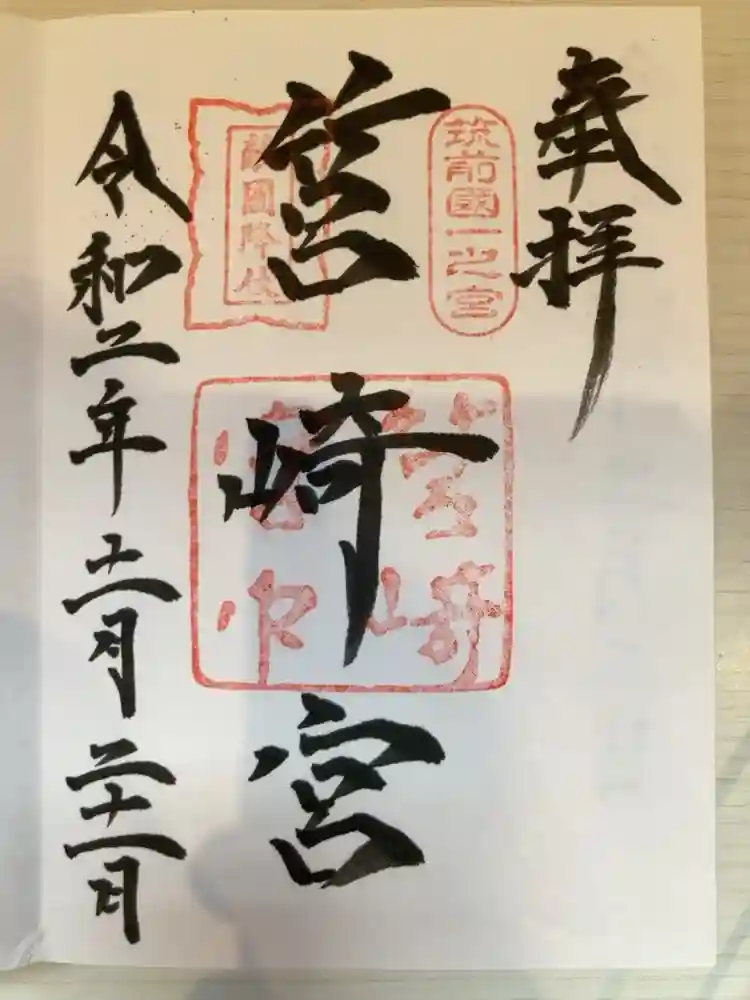 奉拝
筑前國一之宮
筥崎宮
筥崎宮印
敵國降伏
令和二年十一月二十一日